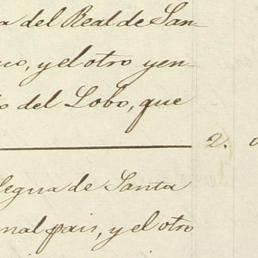 a del Real de San-
co, y el otro yen-
o del Lobo, que
2.
legua de Santa
mal pais, y el otro